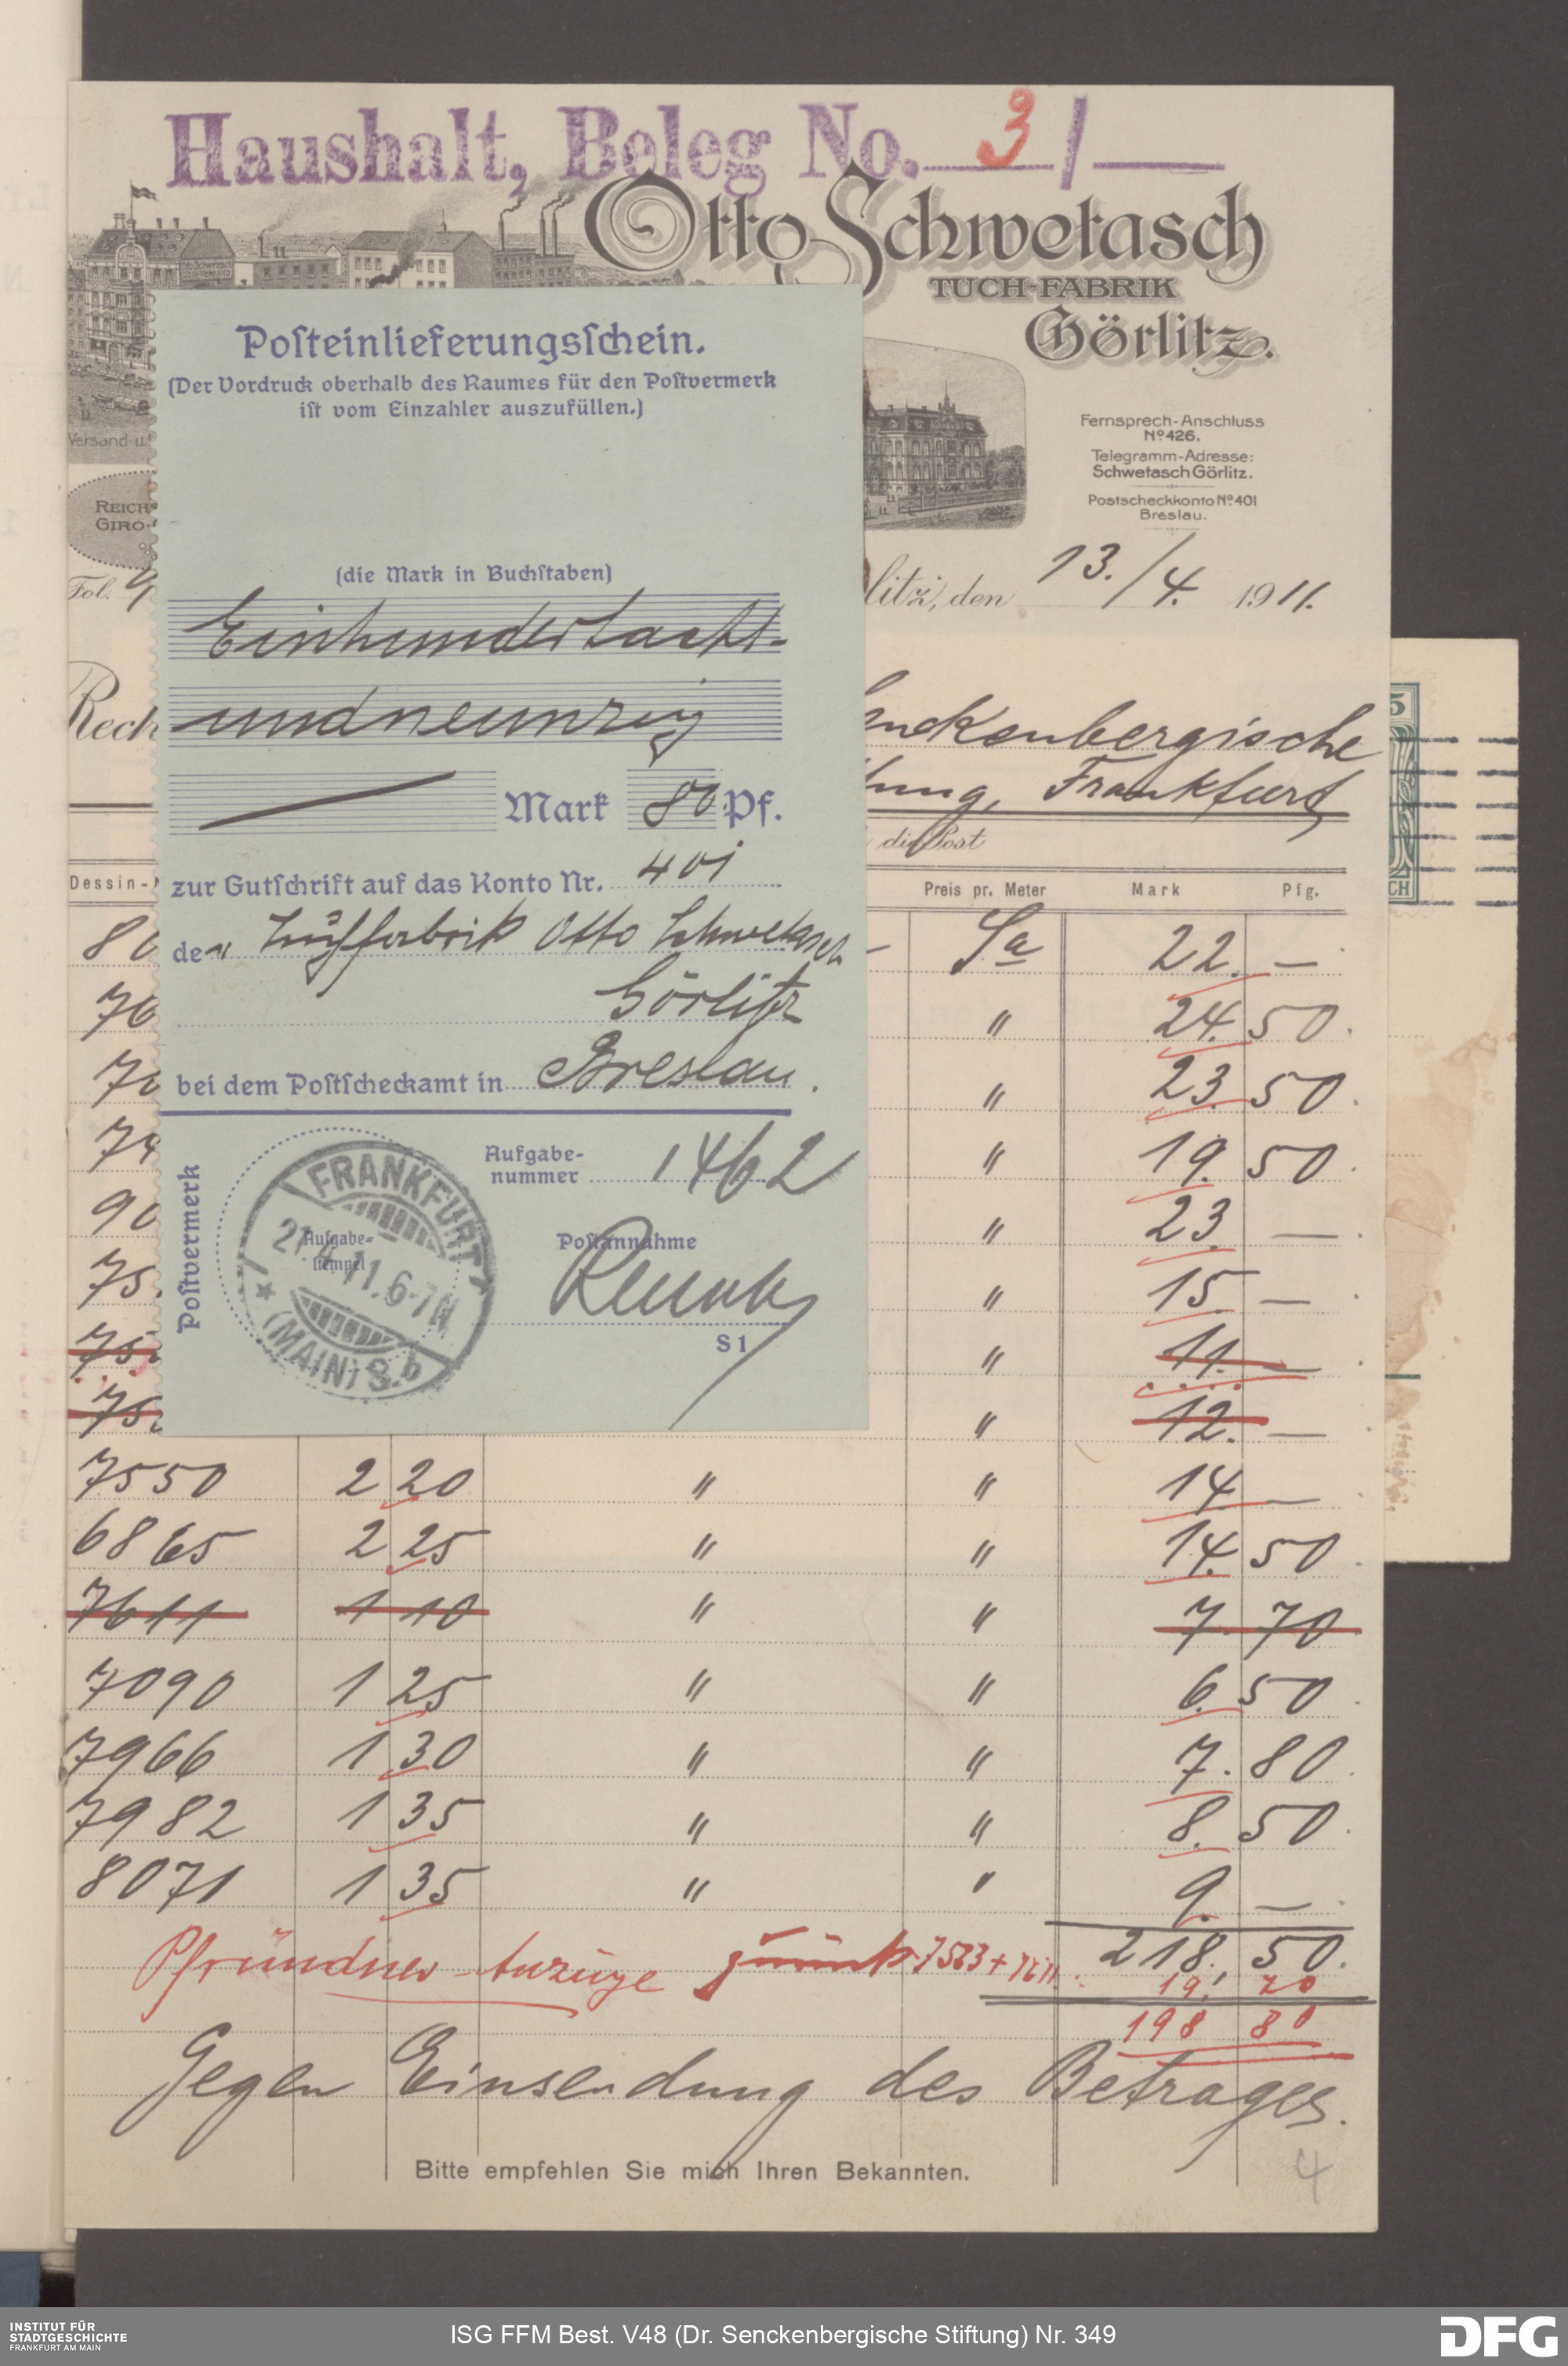 Haushalt, Beleg No. 3/
Otto Schwetasch
TUCH-FABRIK
Görlitz.
Versand-u.
REICH
GIRO-
Fernsprech-Anschluss
No 426.
Telegramm-Adresse:
Schwetasch Görlitz.
Postscheckkonto No 401
Breslau.
Fol. 9
litz, den 13./4. 1911.
Rech
enckenbergische
tung, Frankfurt
die Post
Posteinlieferungsschein.
(Der Vordruck oberhalb des Raumes für den Postvermerk
ist vom Einzahler auszufüllen.)
(die Mark in Buchstaben)
Einhundertacht-
undneunzig
Mark 80 Pf.
zur Gutschrift auf das Konto Nr. 401
der Tuchfabrik Otto Schwetasch
Görlitz
bei dem Postscheckamt in Breslau.
Postvermerk
Aufgabe-
stempel
FRANKFURT
21.4.11.6-7N
* (MAIN) 8.b
Aufgabe-
nummer 1462
Postannahme
S 1
Dessin- Preis pr. Meter Mark Pfg.
80 Sa 22. —
70 " 24. 50
70 " 23. 50
74 " 19. 50
90 " 23. —
75. " 15. —
75 " 11. —
75 " 12. —
7550 2 20 " " 14 —
6865 2 25 " " 14. 50
7611 1 10 " " 7. 70
7090 1 25 " " 6. 50
7966 1 30 " " 7. 80
7982 1 35 " " 8. 50
8071 1 35 " " 9. —
218. 50.
Pfründner-Anzüge zurück 7563 + 7611 19. 70
198 80
Gegen Einsendung des Betrages.
Bitte empfehlen Sie mich Ihren Bekannten.
4
5
CH
INSTITUT FÜR
STADTGESCHICHTE
FRANKFURT AM MAIN
ISG FFM Best. V48 (Dr. Senckenbergische Stiftung) Nr. 349
DFG